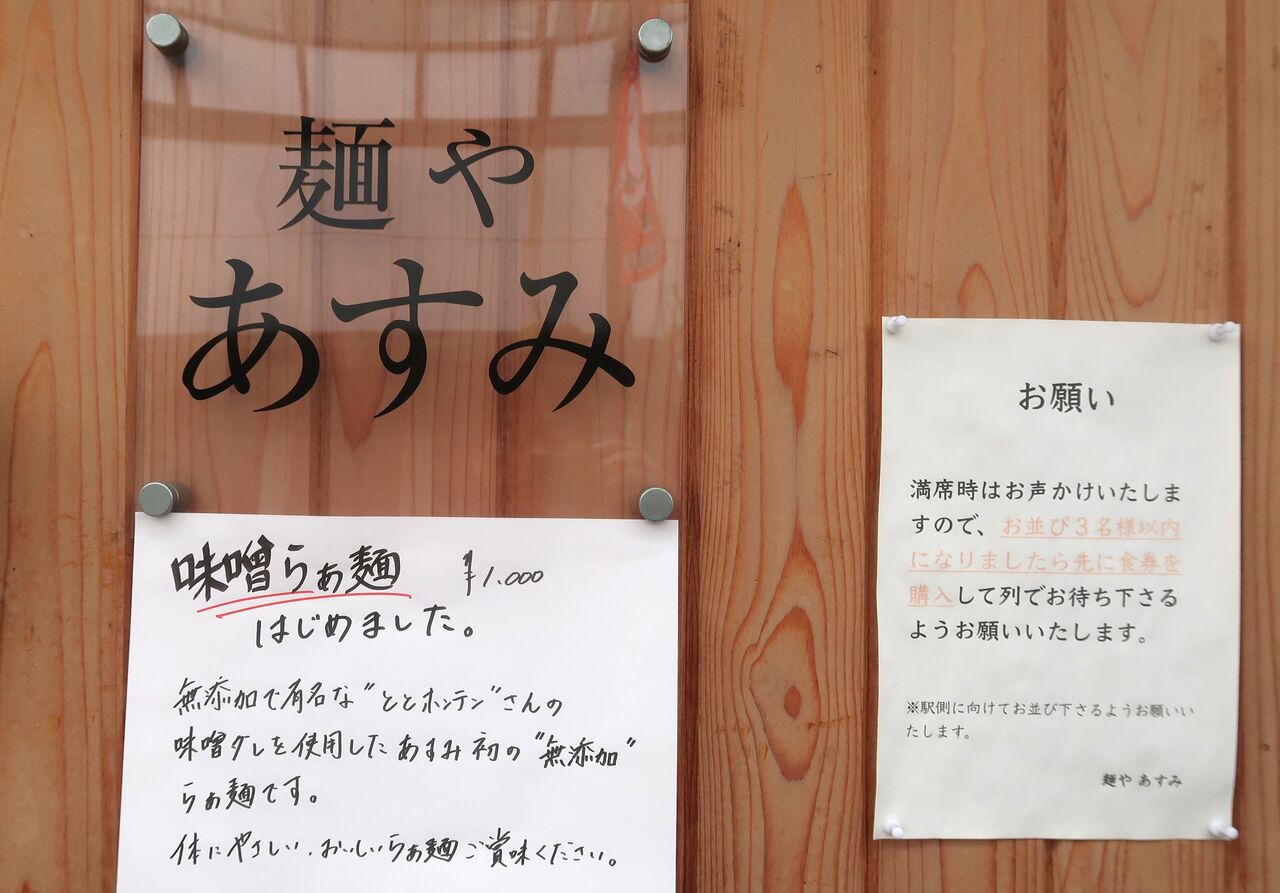 麺や
あすみ
味噌らぁ麺 ¥1,000
はじめました。
無添加で有名な"ととホンテン"さんの
味噌ダレを使用したあすみ初の"無添加"
らぁ麺です。
体にやさしい、おいしいらぁ麺ご賞味ください。
お願い
満席時はお声かけいたしま
すので、お並び3名様以内
になりましたら先に食券を
購入して列でお待ち下さる
ようお願いいたします。
※駅側に向けてお並び下さるようお願いい
たします。
麺や あすみ